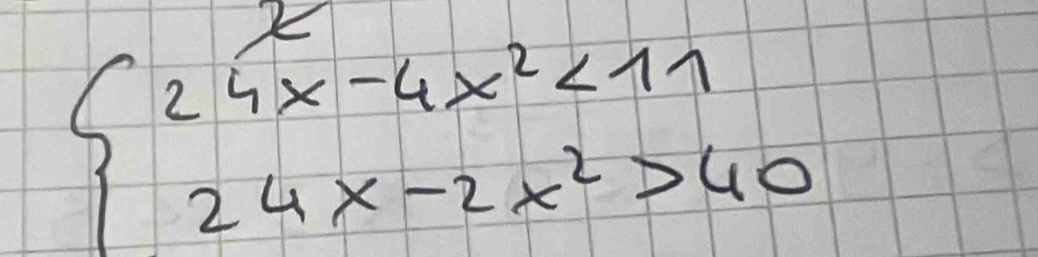 24x-4x²<11
24x-2x²>40